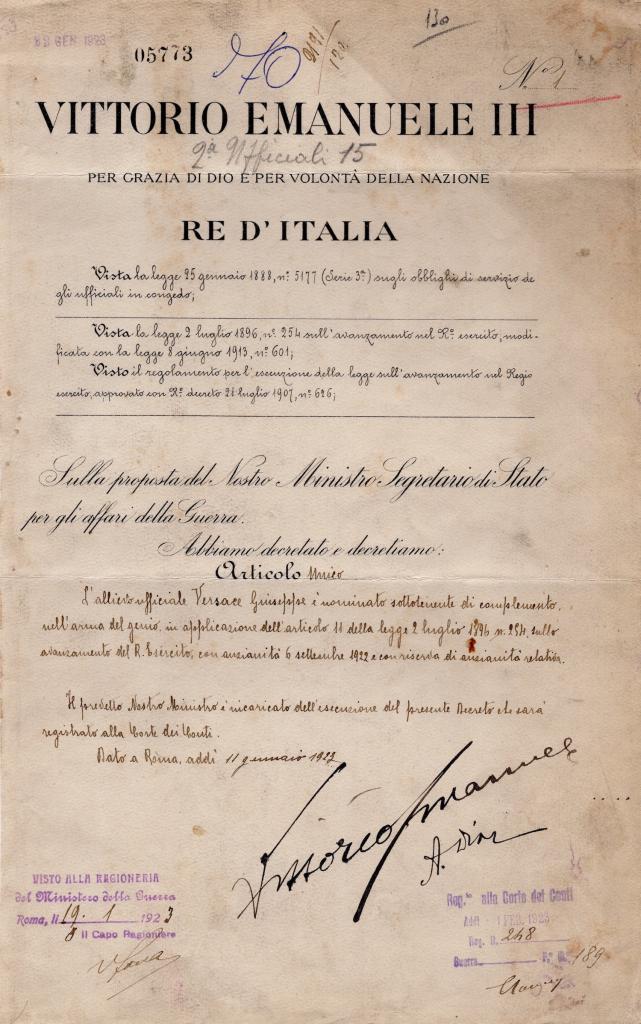 GEN 1923
05773
70
130
N° 1
VITTORIO EMANUELE III
2ª Ufficiali 15
PER GRAZIA DI DIO E PER VOLONTÀ DELLA NAZIONE
RE D'ITALIA
Vista la legge 25 gennaio 1888, n° 5177 (Serie 3ª) sugli obblighi di servizio de
gli ufficiali in congedo;
Vista la legge 2 luglio 1896, n° 254 sull'avanzamento nel R° esercito, modi-
ficata con la legge 8 giugno 1913, n° 601;
Visto il regolamento per l'esecuzione della legge sull'avanzamento nel Regio
esercito, approvato con R° decreto 21 luglio 1907, n° 626;
Sulla proposta del Nostro Ministro Segretario di Stato
per gli affari della Guerra.
Abbiamo decretato e decretiamo:
Articolo unico
L'allievo ufficiale Versace Guiseppe è nominato sottotenente di complemento,
nell'arma del genio, in applicazione dell'articolo 11 della legge 2 luglio 1896 n. 254, sullo
avanzamento del R. Esercito, con anzianità 6 settembre 1922 e con riserva di anzianità relativa.
Il predetto Nostro Ministro è incaricato dell'esecuzione del presente Decreto che sarà
registrato alla Corte dei Conti.
Dato a Roma, addì 11 gennaio 1923
Vittorio Emanuele
A. Diaz
VISTO ALLA RAGIONERIA
del Ministero della Guerra
Roma, li 19. 1 1923
Il Capo Ragioniere
Reg.to alla Corte dei Conti
Addì 1 FEB. 1923
Reg. N. 248
Guerra F.° N. 189